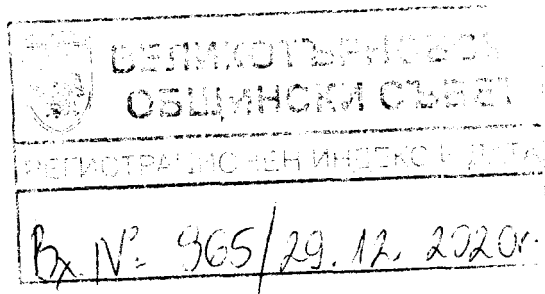 ВЕЛИКОТЪРНОВСКИ
ОБЩИНСКИ СЪВЕТ
РЕГИСТРАЦИОНЕН ИНДЕКС И ДАТА
Вх. № 965/29.12.2020г.